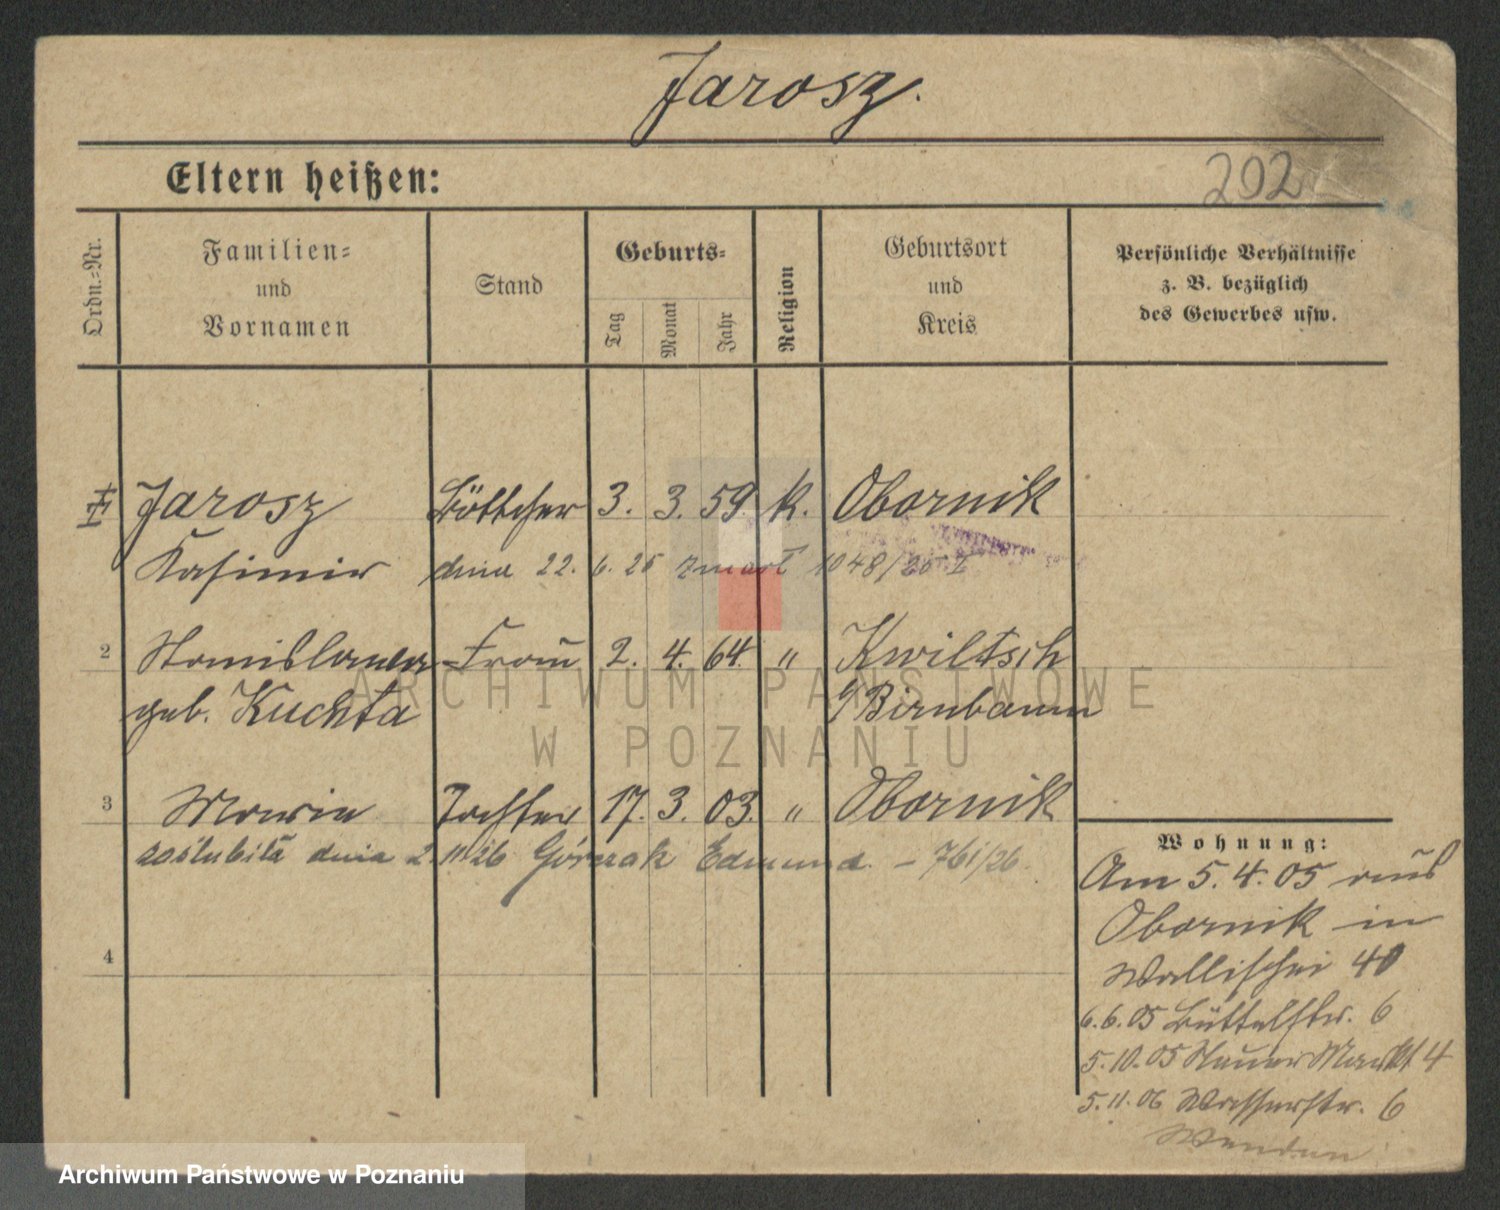 Jarosz.
Eltern heißen:
202
Ordn.=Nr.
Familien=
und
Vornamen
Stand
Geburts=
Tag
Monat
Jahr
Religion
Geburtsort
und
Kreis
Persönliche Verhältnisse
z. B. bezüglich
des Gewerbes usw.
Jarosz Böttcher 3. 3. 59. k. Obornik
Kasimir dnia 22. 6. 25 zmarł 1048/25 I
2 Stanislawa Frau 2. 4. 64. " Kwiltsch
geb. Kuchta Birnbaum
3 Maria Tochter 17. 3. 03. " Obornik
poślubiła dnia 2. 11 26 Górzak Edmund. – 761/26.
4
Wohnung:
Am 5. 4. 05 aus
Obornik in
Wallischei 40
6. 6. 05 Büttelstr. 6
5. 10. 05 Neuer Markt 4
5. 11. 06 Wasserstr. 6
ARCHIWUM PAŃSTWOWE
W POZNANIU
Archiwum Państwowe w Poznaniu